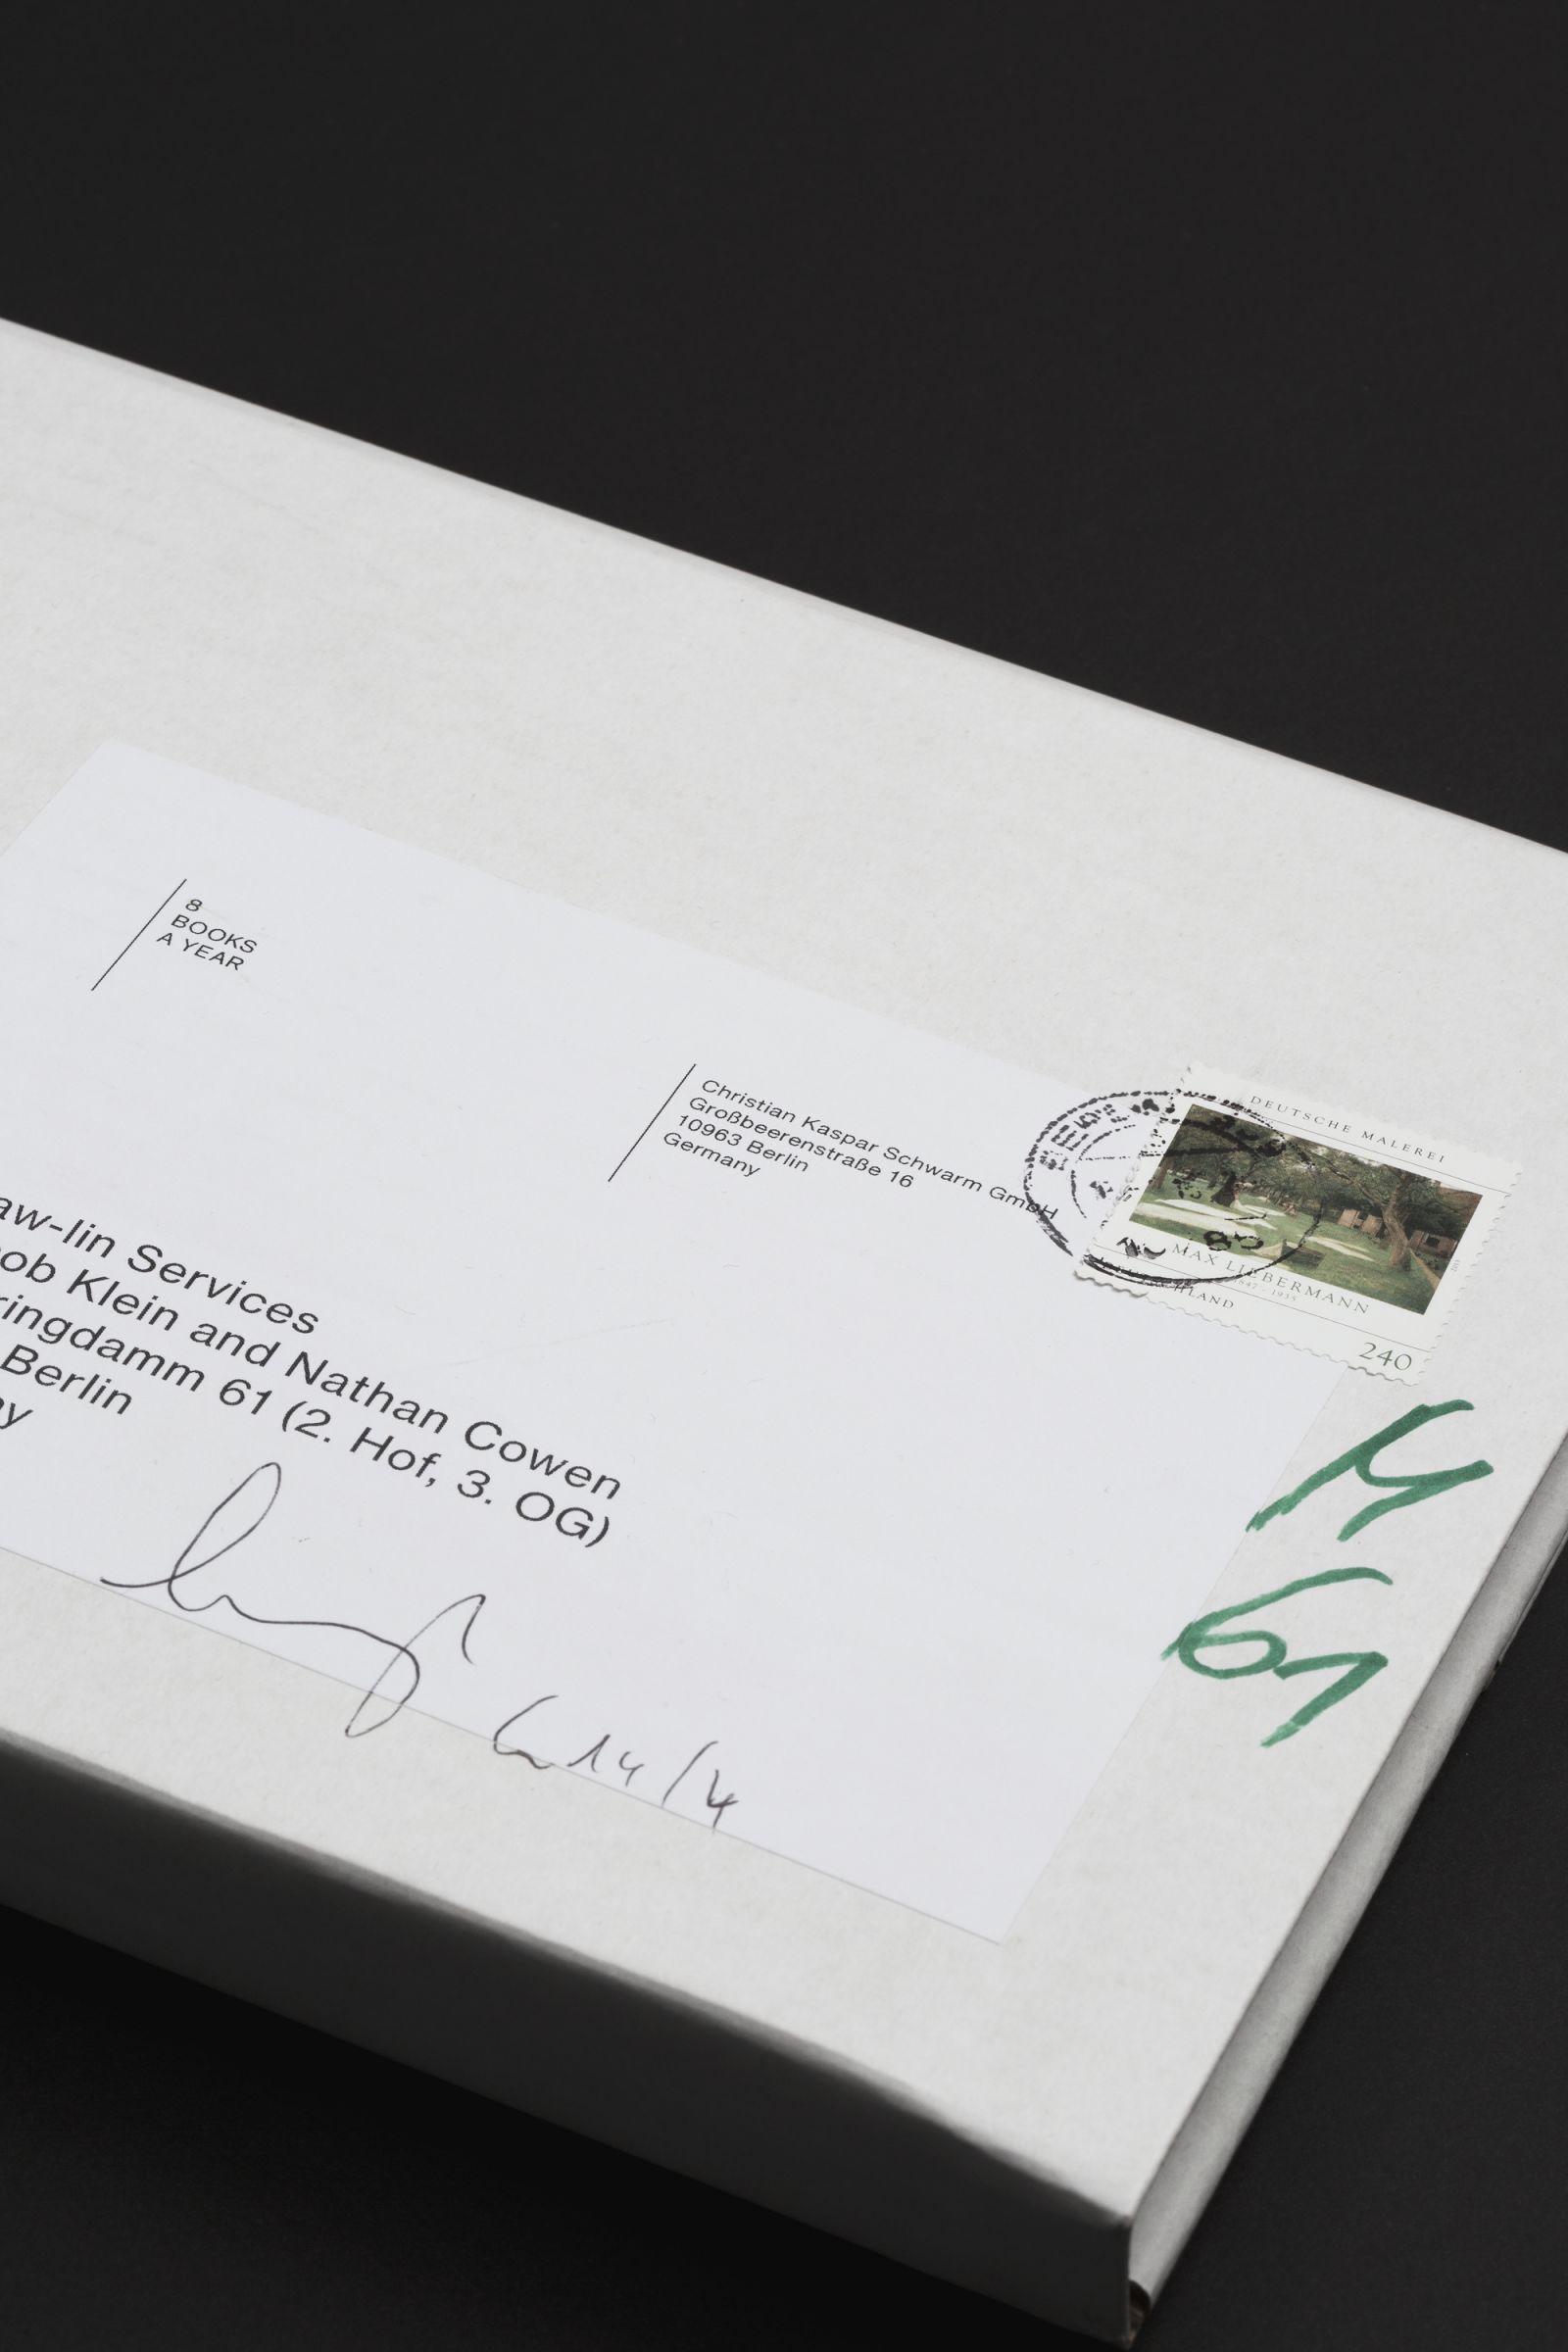 8
BOOKS
A YEAR
Christian Kaspar Schwarm GmbH
Großbeerenstraße 16
10963 Berlin
Germany
DEUTSCHE MALEREI
MAX LIEBERMANN
1847 - 1935
240
aw-lin Services
ob Klein and Nathan Cowen
ringdamm 61 (2. Hof, 3. OG)
Berlin
y
14/4
61